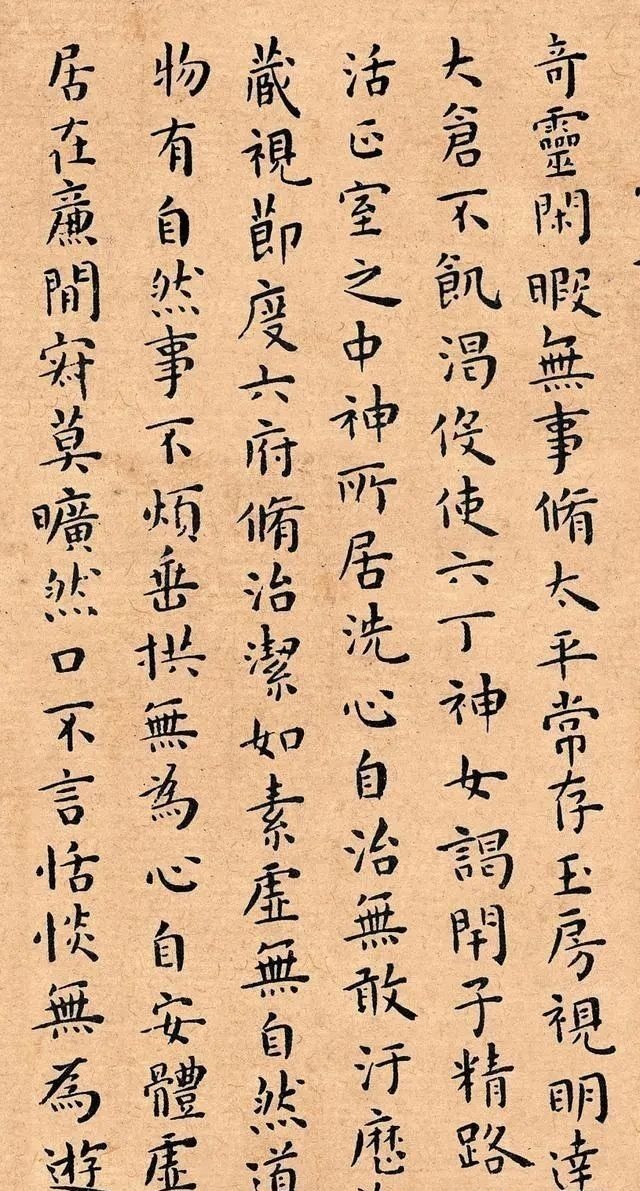 奇靈閑暇無事脩太平常存玉房視明達
大倉不飢渴伇使六丁神女謁閇子精路
活正室之中神所居洗心自治無敢汙歷
藏視節度六府脩治潔如素虛無自然道
物有自然事不煩垂拱無為心自安體虛
居在廉間寂莫曠然口不言恬惔無為遊